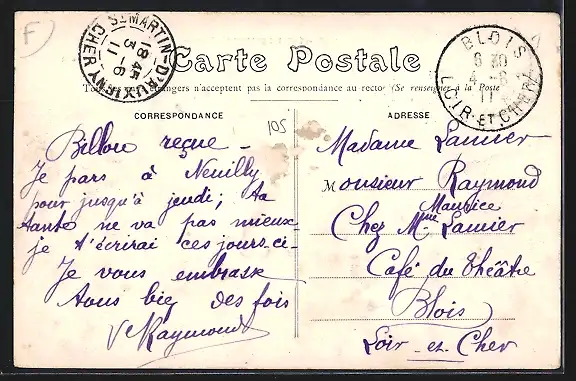 F
ST MARTIN-D'AUXIGNY
18 45
3 -6
11
CHER
Carte Postale
BLOIS
6 30
4 -6
11
LOIR-ET-CHER
n'acceptent pas la correspondance au recto (Se renseigner à la Poste
CORRESPONDANCE
105
ADRESSE
reçue -
Je pars à Neuilly
pour jusqu'à jeudi; ta
tante ne va pas mieux
je t'écrirai ces jours-ci-
Je vous embrasse
tous des fois
Raymond
Madame Lamier
Monsieur Raymond
Maurice
Chez Mme Lamier
Café du Théâtre
Blois
Loir-et-Cher